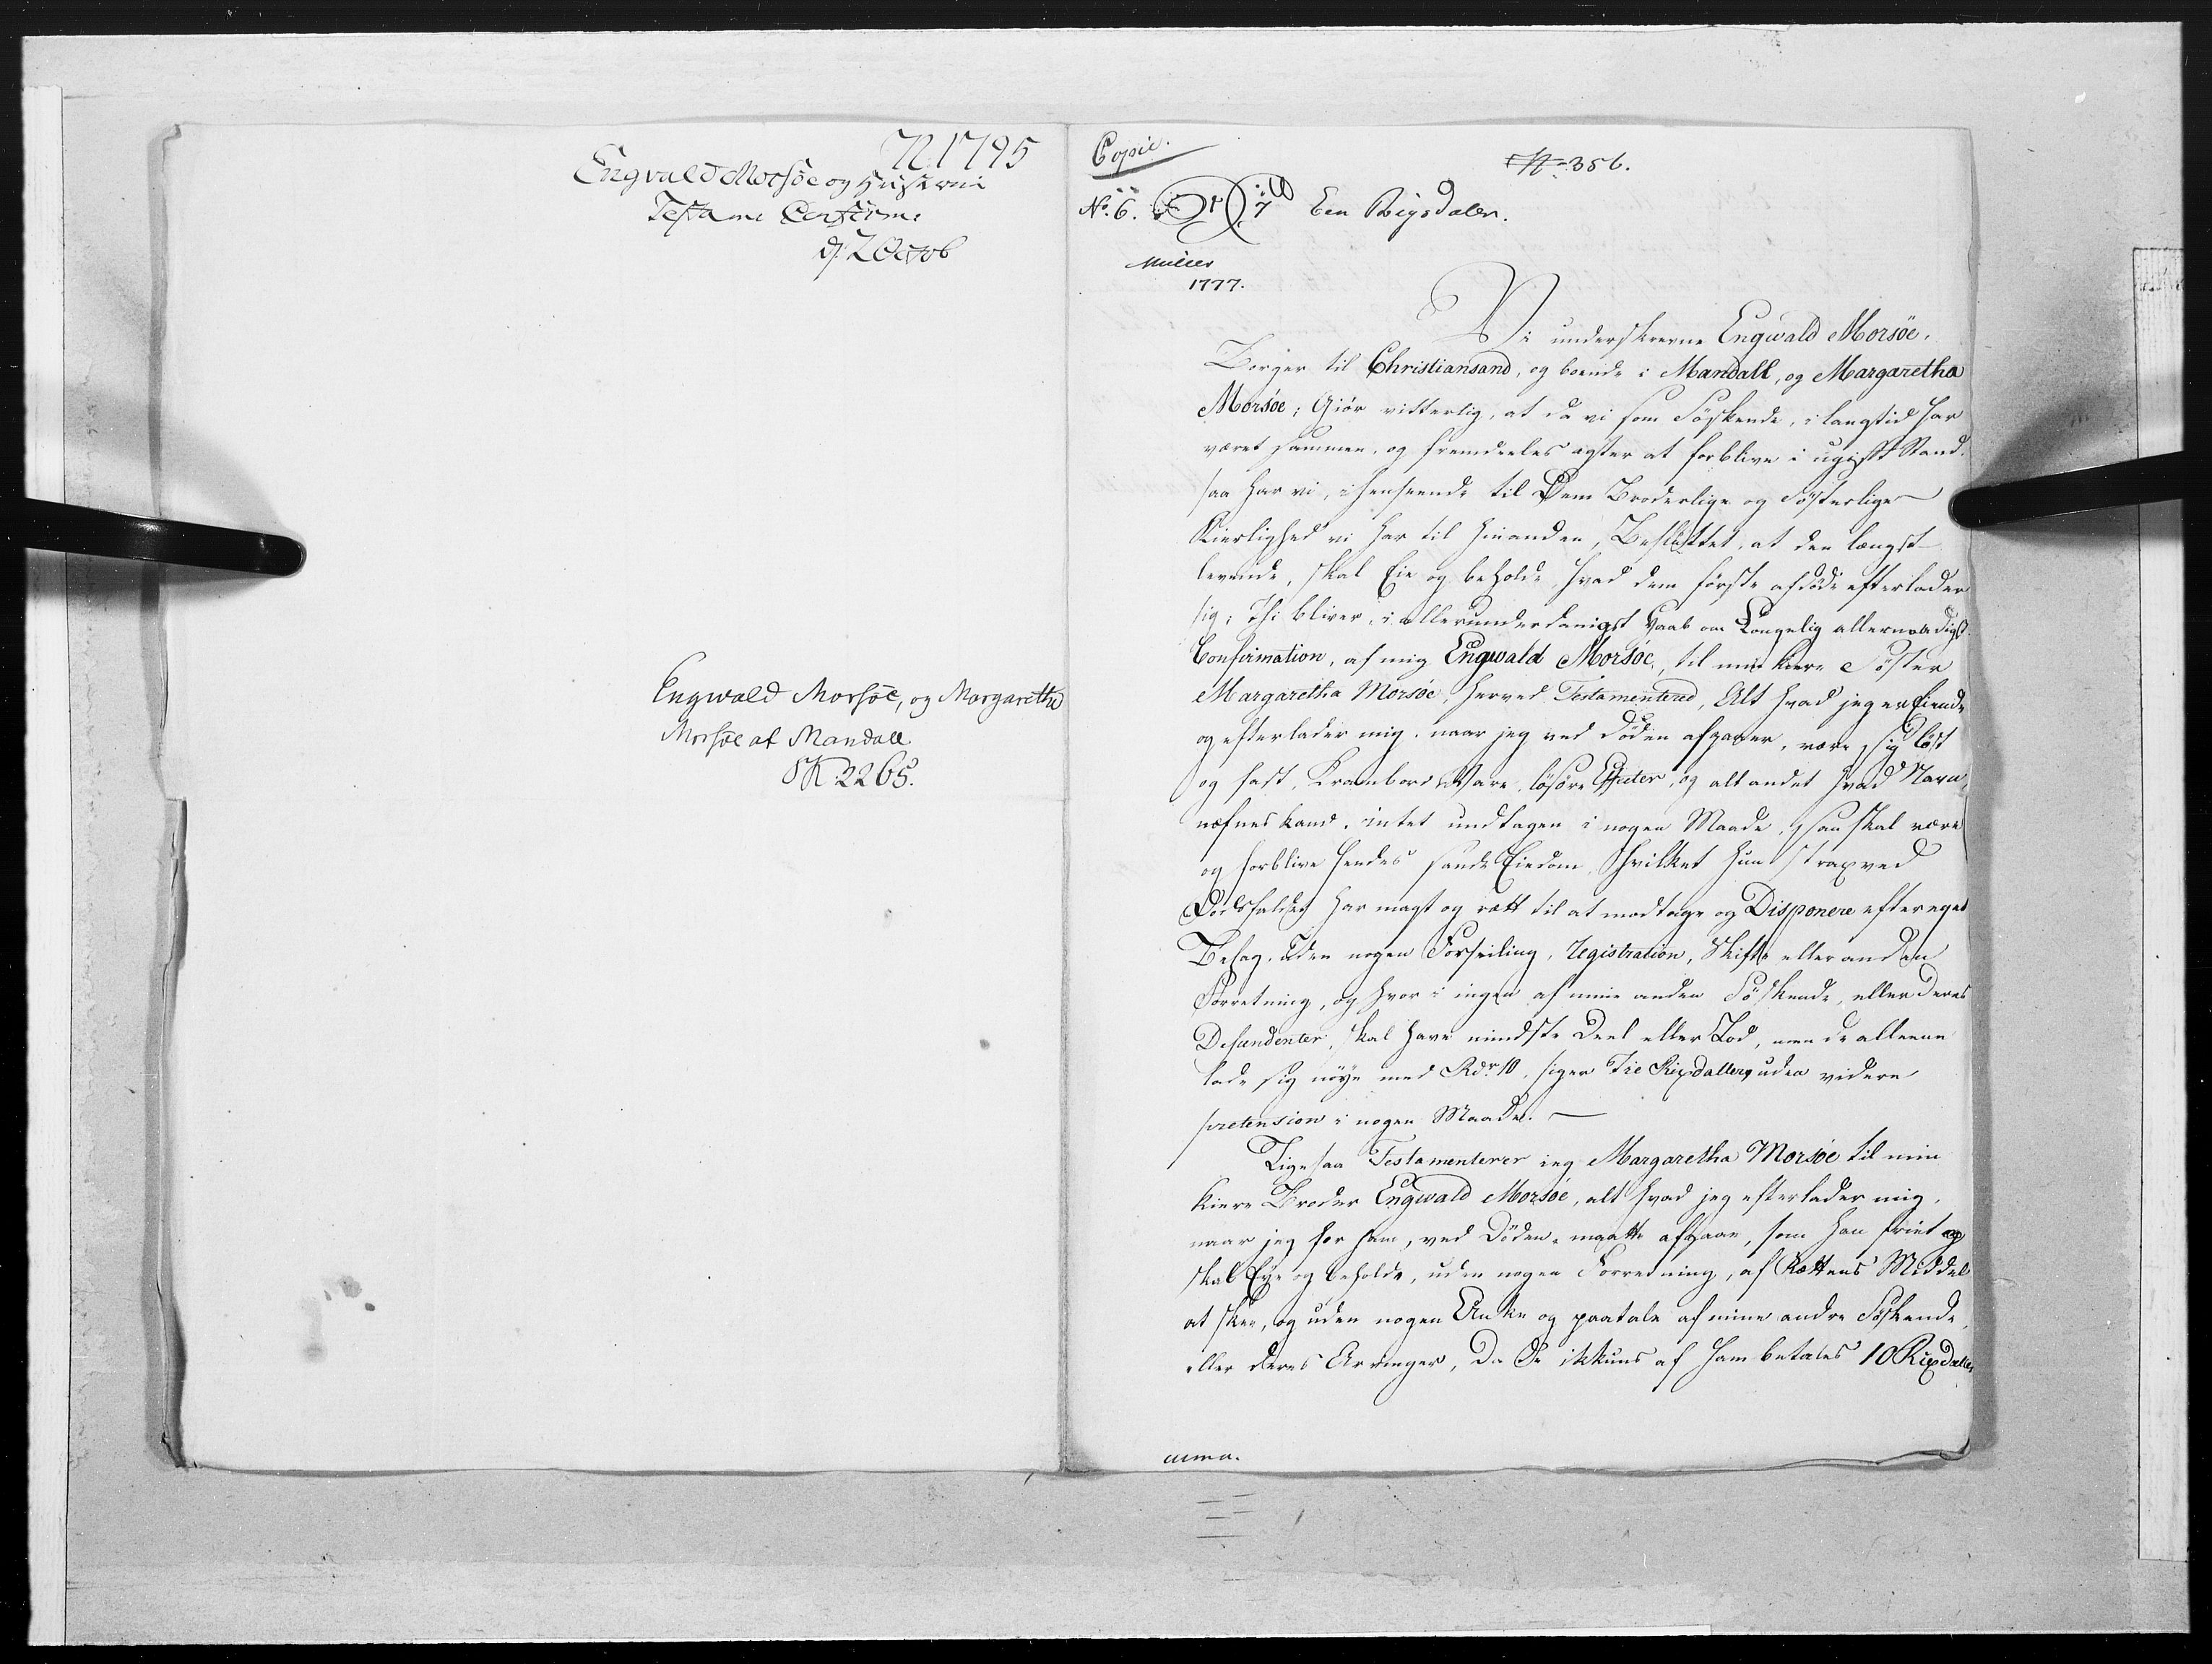 N 1795
Engvald Morsöe og Hustrue
Testam: Confirm:
d: 2 Octob
Engwald Morsöe, og Margaretha
Morsöe af Mandall
SK 2265.
Copie.
N 356.
No. 6. 7 Een Rigsdaler.
Müller
1777.
Vi underskrevne Engwald Morsöe,
Borger til Christiansand, og boende i Mandall, og Margaretha
Morsöe; Giör vitterlig, at da vi som Söskende, i lang tid har
været sammen, og fremdeeles agter at forblive i ugift Stand,
saa har vi, i henseende til Dem Broderlige og Söysterlige
Kierlighed vi har til hinanden, Besluttet, at den længst
levende, skal Eie og beholde hvad dem förste afdöde efterlader
sig; Thi bliver, i allerunderdanigst Haab om Kongelig allernaadigst
Confirmation, af mig Engwald Morsöe, til min kiere Söster
Margaretha Morsöe, herved Testamentered, Alt hvad jeg er Eiende
og efterlader mig, naar jeg ved Döden afgaaer, være sig löst
og fast, Krambod Vare, lösöre Effecter, og alt andet hvad Navn
næfnes kand, intet undtagen i nogen Maade, saa skal være
og forblive hendes sande Eiedom, Hvilket hun strax ved
Dödsfaldet har magt og rætt til at modtage og Disponere efter eget
Behag, uden nogen Forseiling, registration, Skifte eller anden
Forretning, og hvor i ingen af mine anden Söskende, eller deres
Descendenter, skal have mindste Deel eller Lod, men de alleene
lade sig nöye med Rdr 10, siger Tie Rixdallers uden videre
pretension i nogen Maade. —
Ligesaa Testamenterer ieg Margaretha Morsöe til min
kiere Broder Engwald Morsöe, alt hvad jeg efterlader mig,
naar jeg for ham, ved Döden maatte afgaae, som han friet og
skal Eye og beholde, uden nogen Forretning, af Rættens Middel
at skee, og uden nogen Anke og paatale af mine andre Söskende,
eller deres Arvinger, da De ikkuns af ham betales 10 Rixdaller